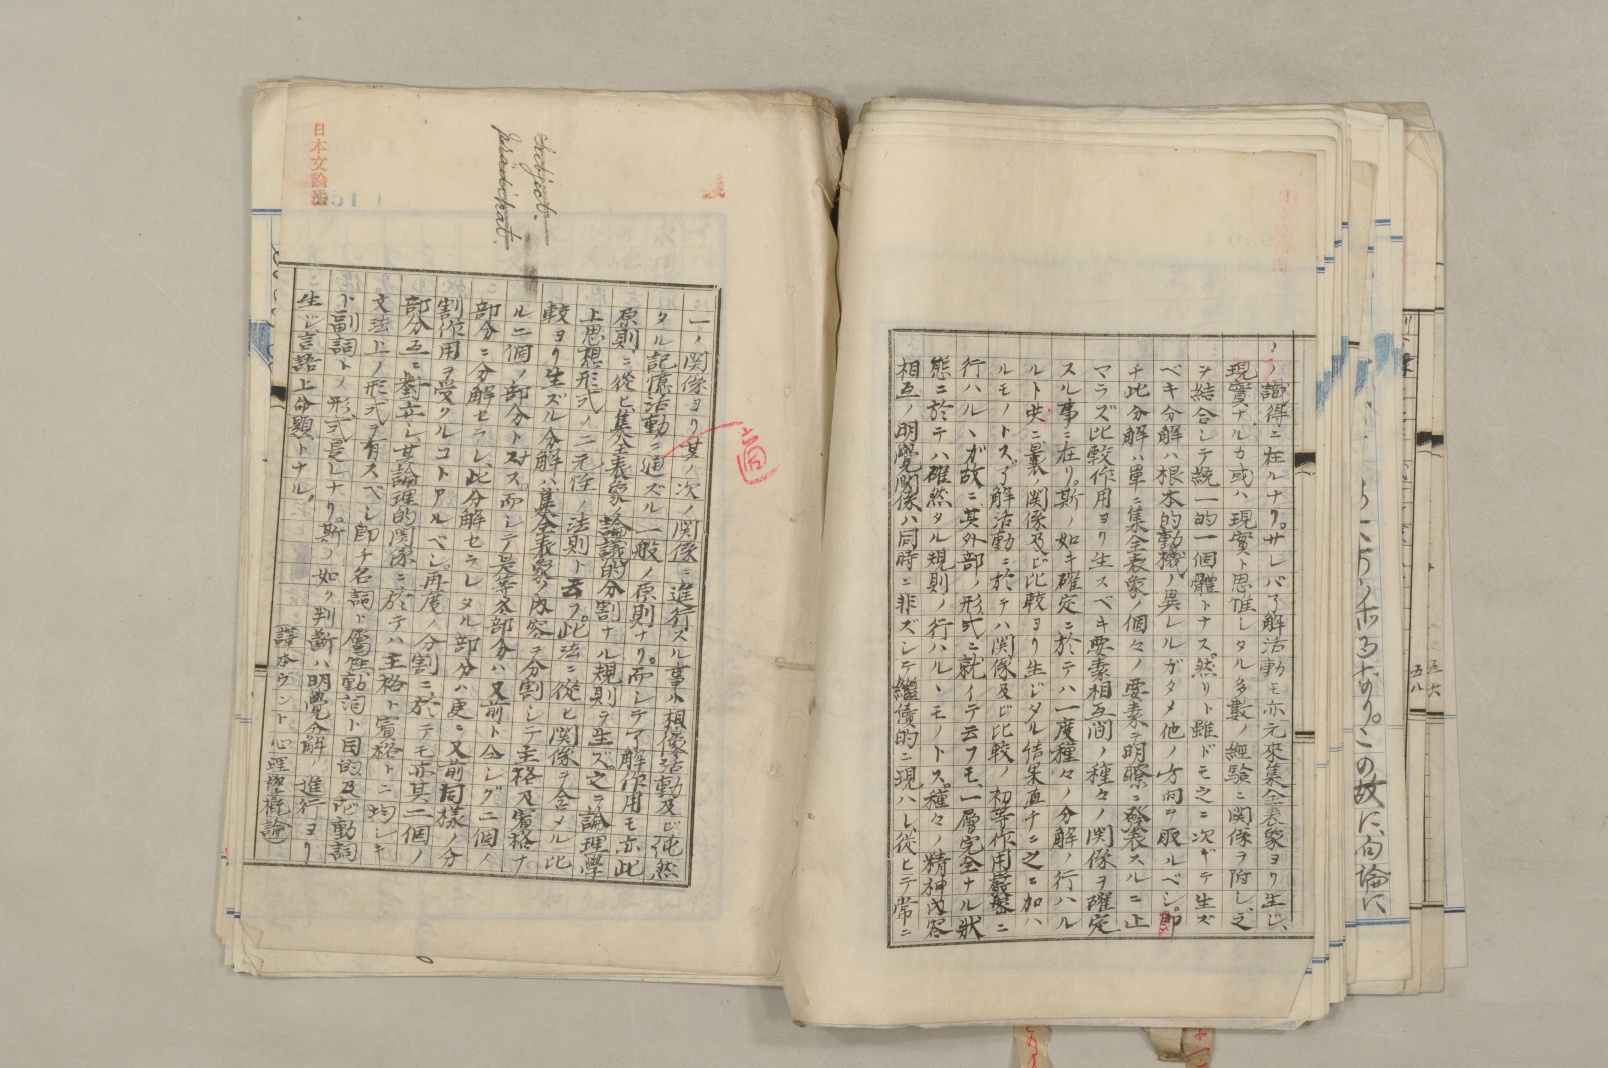 ノ識得ニ在ルナリ。サレバ了解活動モ亦元來集全表象ヨリ生ジ、
現實ナルカ或ハ現實ト思惟シタル多數ノ經驗ニ関係ヲ附シ、之
ヲ結合シテ統一的一個體トナス。然リト雖ドモ之ニ次ギテ生ズ
ベキ分解ハ根本的動機ノ異レルガタメ他ノ方向ヲ取ルベシ。即
チ此分解ハ單ニ集全表象ノ個々ノ要素ヲ明瞭ニ發表スルニ止
マラズ比較作用ヨリ生スベキ要素相互間ノ種々ノ関係ヲ確定
スル事ニ在リ。斯ノ如キ確定ニ於テハ一度種々ノ分解ノ行ハル
ルト共ニ曩ノ関係及ビ比較ヨリ生ジタル結果直チニ之ニ加ハ
ルモノトス。了解活動ニ於テハ関係及ビ比較ノ初等作用嚴密ニ
行ハルヽガ故ニ其外部ノ形式ニ就イテ云フモ、一層完全ナル狀
態ニ於テハ確然タル規則ノ行ハルヽモノトス。種々ノ精神内容
相互ノ明覺関係ハ同時ニ非ズシテ繼續的ニ現ハレ從ヒテ常ニ
一ノ関係ヨリ其ノ次ノ関係ニ進行スル事ハ想像活動及ビ純然
タル記憶活動ニ通ズル一般ノ原則ナリ。而シテ了解作用モ亦此
原則ニ從ヒ集全表象ノ論議的分割ナル規則ヲ生ズ。之ヲ論理學
上思想形式ノ二元性ノ法則ト云フ。此法ニ從ヒ関係ヲ含メル比
較ヨリ生ズル分解ハ集全表象ノ内容ヲ分割シテ主格及賓格ナ
ル二個ノ部分トス。而シテ是等各部分ハ又前ト仝シグ二個ノ
部分ニ分解セラレ、此分解セラレタル部分ハ更ニ又前同樣ノ分
割作用ヲ受クルコトアルベシ。再度ノ分割ニ於テモ亦其二個ノ
部分互ニ對立シ、其論理的関係ニ於テハ主格ト賓格トニ均シキ
文法上ノ形式ヲ有スベシ即チ名詞ト屬性、動詞ト目的及ビ動詞
ト副詞トノ形式是レナリ。斯ノ如ク判斷ハ明覺分解ノ進行ヨリ
生ジ言語上命題トナル。
(譯本ヴント心理學概論)
subject.
prädikat.
日本文論法
五六
五八
この故に、向論に